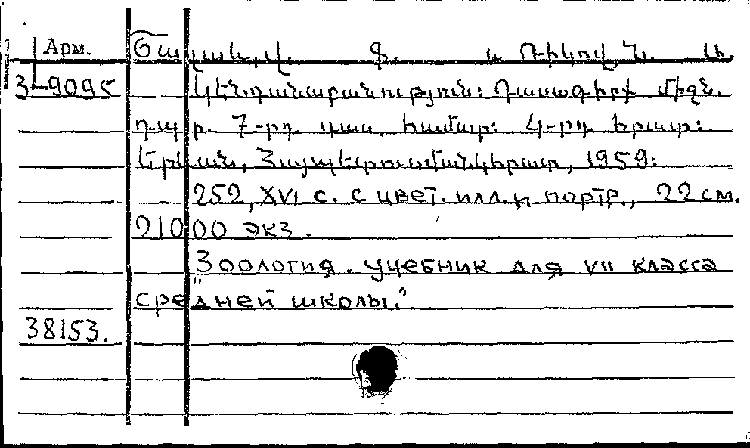 Арм. Ցալա և Ռիկով Ն.
3-9095 Կենդանաբանություն: Դասագիրք միջն.
դպր. 7-րդ դաս. համար: 4-րդ հրատ:
Երևան, Հայպետուսմանկհրատ, 1959:
252, XVI с. с цвет. илл. и портр., 22 см.
21000 экз.
"Зоология. учебник для VII класса
средней школы."
38153.